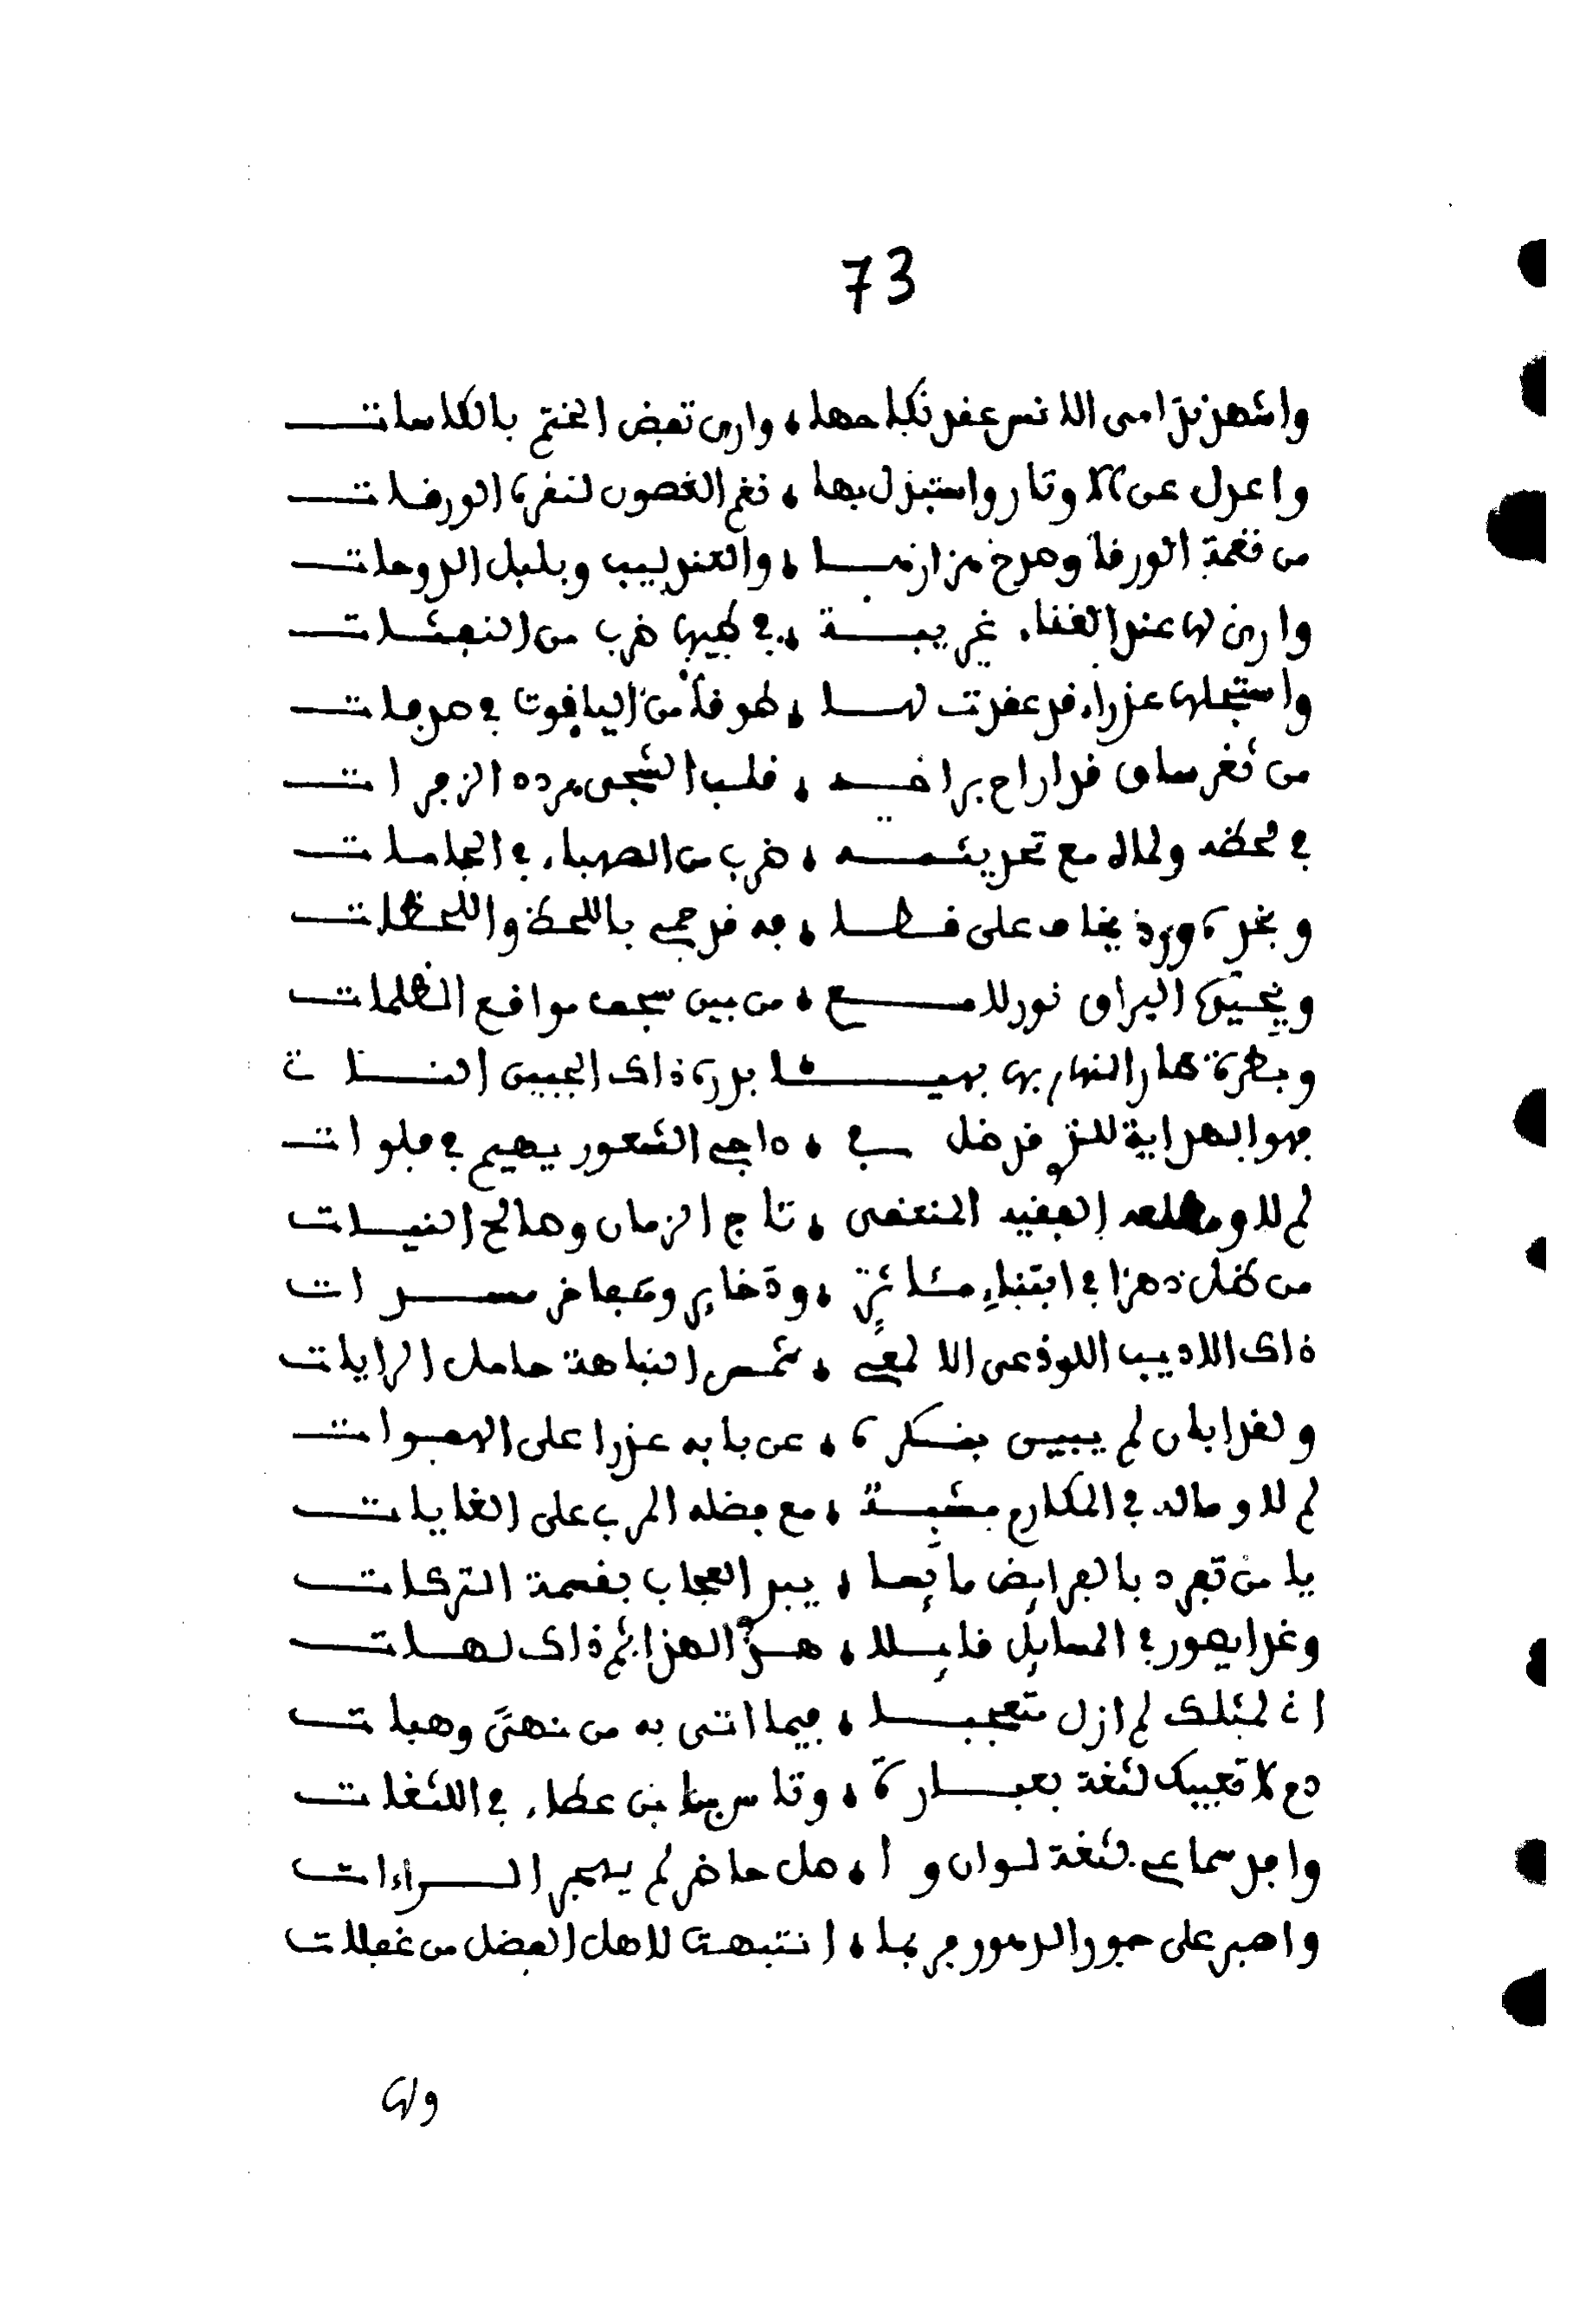 73
واشهد نداى الانس عقد نكاحها ، وادى تعض الختم بالكاسات
واعدل عن الاوتار واستبدل بها ، نغم الغصون لنقرة الورقات
من نغمة الورقا وصدح هزارنا ، والعندليب وبلبل الدوحات
وارى لها عند الغناء غريبة ، في طيها ضرب من النعثات
واستجلها عذراء قد عقدت لها ، طوقا من الياقوت في صدفات
من ثغر ساق قد اراح براحه ، قلب الشجى مرده الزجرات
في لحظه ولماه مع تحريشه ، ضرب من الصهباء في الجامات
وبخده ورد يخاف على قطا ، فه قد حمي باللحظ والحظات
من بين سجف مواقع الظلمات
وبطرة حار النهار بها بهيـا بدره ذاك الجبين
فهو الهداية للذي قد ضل في ، داجي الشعور يهيم في فلوات
لم لا ومطلعه الفقيد المنتقى ، تاج الزمان وصالح النيات
من ظل دهرا في اقتناء مآثر ، وذخاير ومفاخر مسرات
ذاك الاديب اللوذعى الالمعي ، شمس النباهة حامل الرايات
ولقد ابان لم يبين بفكره ، عن بابه عذرا على الهفوات
لم لا وماله في المكارم مشبة ، مع فضله المرب على الغايات
يا من تفرد بالفرايض مايها ، يبد العجاب بقسمة التركات
وغدا يصور في المسايل قايلا ، هذا لهذا ثم ذاك لهات
ان لمثلك لم ازل متعجبا ، فيما اتى به من نهى وهبات
دع لا تعيبك لثغة بعبارة ، وتاس بها بن عطاء في اللثغات
وافد سماعي لثغة لوان وا ، صل حاضر لم يهجر الراءات
واصبر على جور الدهور فربما ، انتبهت لاهل الفضل من غفلات
ولها